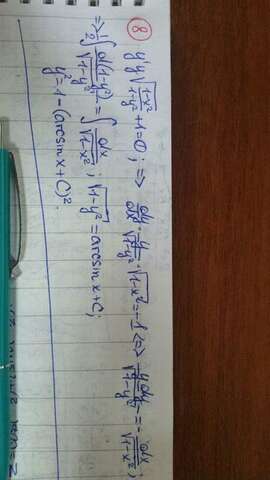 ⑧ y'y√((1-x²)/(1-y²)) + 1 = 0; => dy/dx · y/√(1-y²) · √(1-x²) = -1 <=> ydy/√(1-y²) = - dx/√(1-x²);
=> 1/2 ∫ d(1-y²)/√(1-y²) = ∫ dx/√(1-x²); √(1-y²) = arcsin x + C;
y² = 1 - (arcsin x + C)².